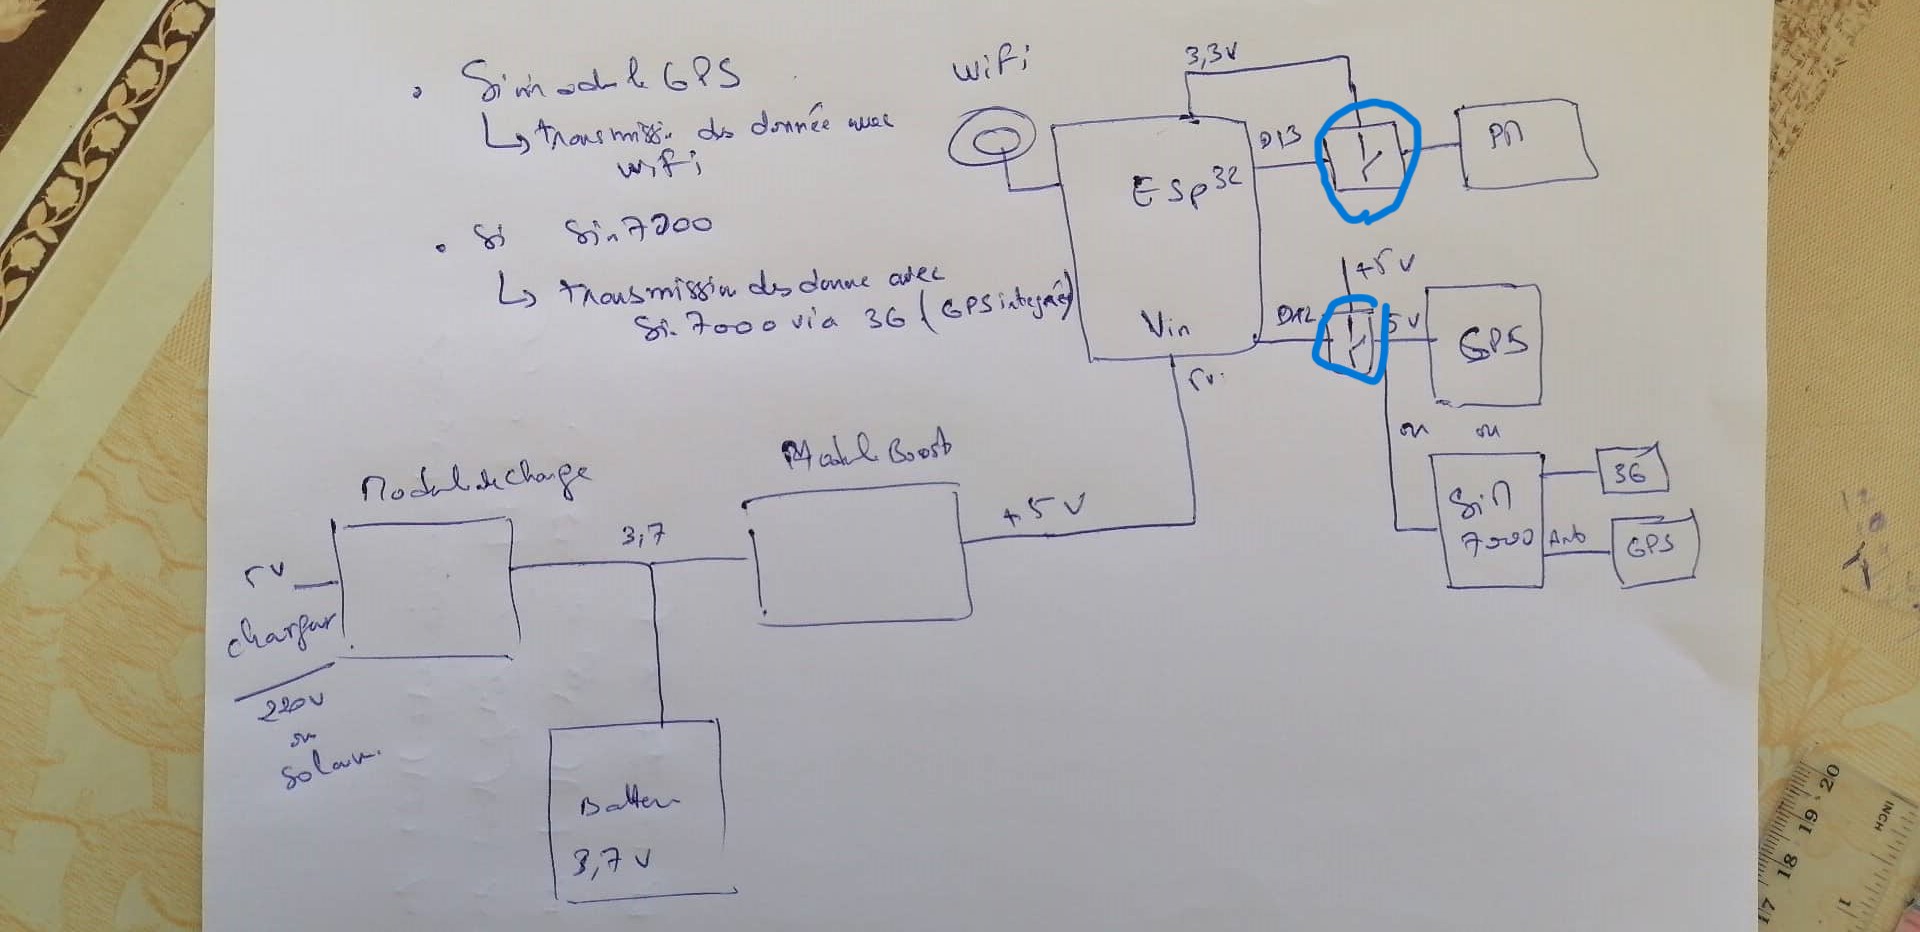 Si module GPS
↳ transmissi. des donnée avec
wifi
Si Sim7000
↳ transmission des donne avec
Sim 7000 via 3G (GPS integré)
WiFi
3,3V
ESP32
D13
PM
+5V
D12
5V
GPS
Vin
5V
ou ou
SiM
7000
3G
Ant
GPS
Module de charge
Module Boost
3,7
+5V
5V
chargeur
220V
ou
Solair.
3,7 V
20
19
18
17
INCH
1